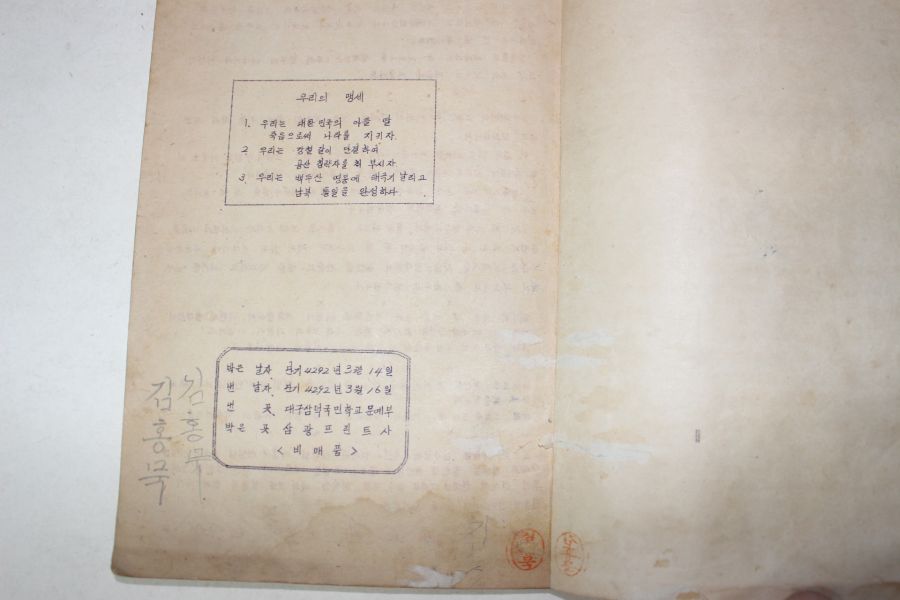 우리의 맹세
1. 우리는 대한민국의 아들 딸
죽음으로써 나라를 지키자.
2. 우리는 강철같이 단결하여
공산 침략자를 쳐 부시자
3. 우리는 백두산 영봉에 태극기 날리고
남북 통일을 완성하자
박은 날자 단기 4292년 3월 14일
번 날자 단기 4292년 3월 16일
번 곳 대구삼덕국민학교 문예부
박은 곳 삼광프린트사
<비매품>
김홍묵
김홍묵